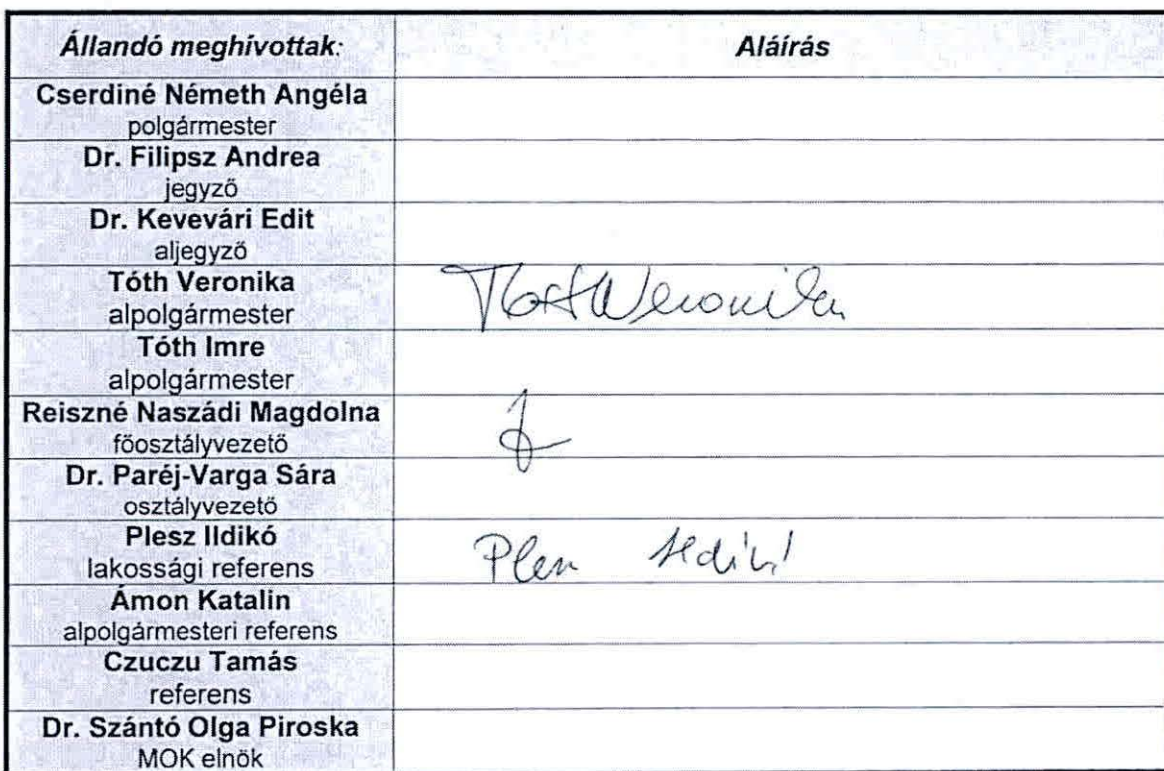 Állandó meghívottak:
Aláírás
Cserdiné Németh Angéla
polgármester
Dr. Filipsz Andrea
jegyző
Dr. Kevevári Edit
aljegyző
Tóth Veronika
alpolgármester
Tóth Veronika
Tóth Imre
alpolgármester
Reiszné Naszádi Magdolna
főosztályvezető
Dr. Paréj-Varga Sára
osztályvezető
Plesz Ildikó
lakossági referens
Plesz Ildikó
Ámon Katalin
alpolgármesteri referens
Czuczu Tamás
referens
Dr. Szántó Olga Piroska
MOK elnök